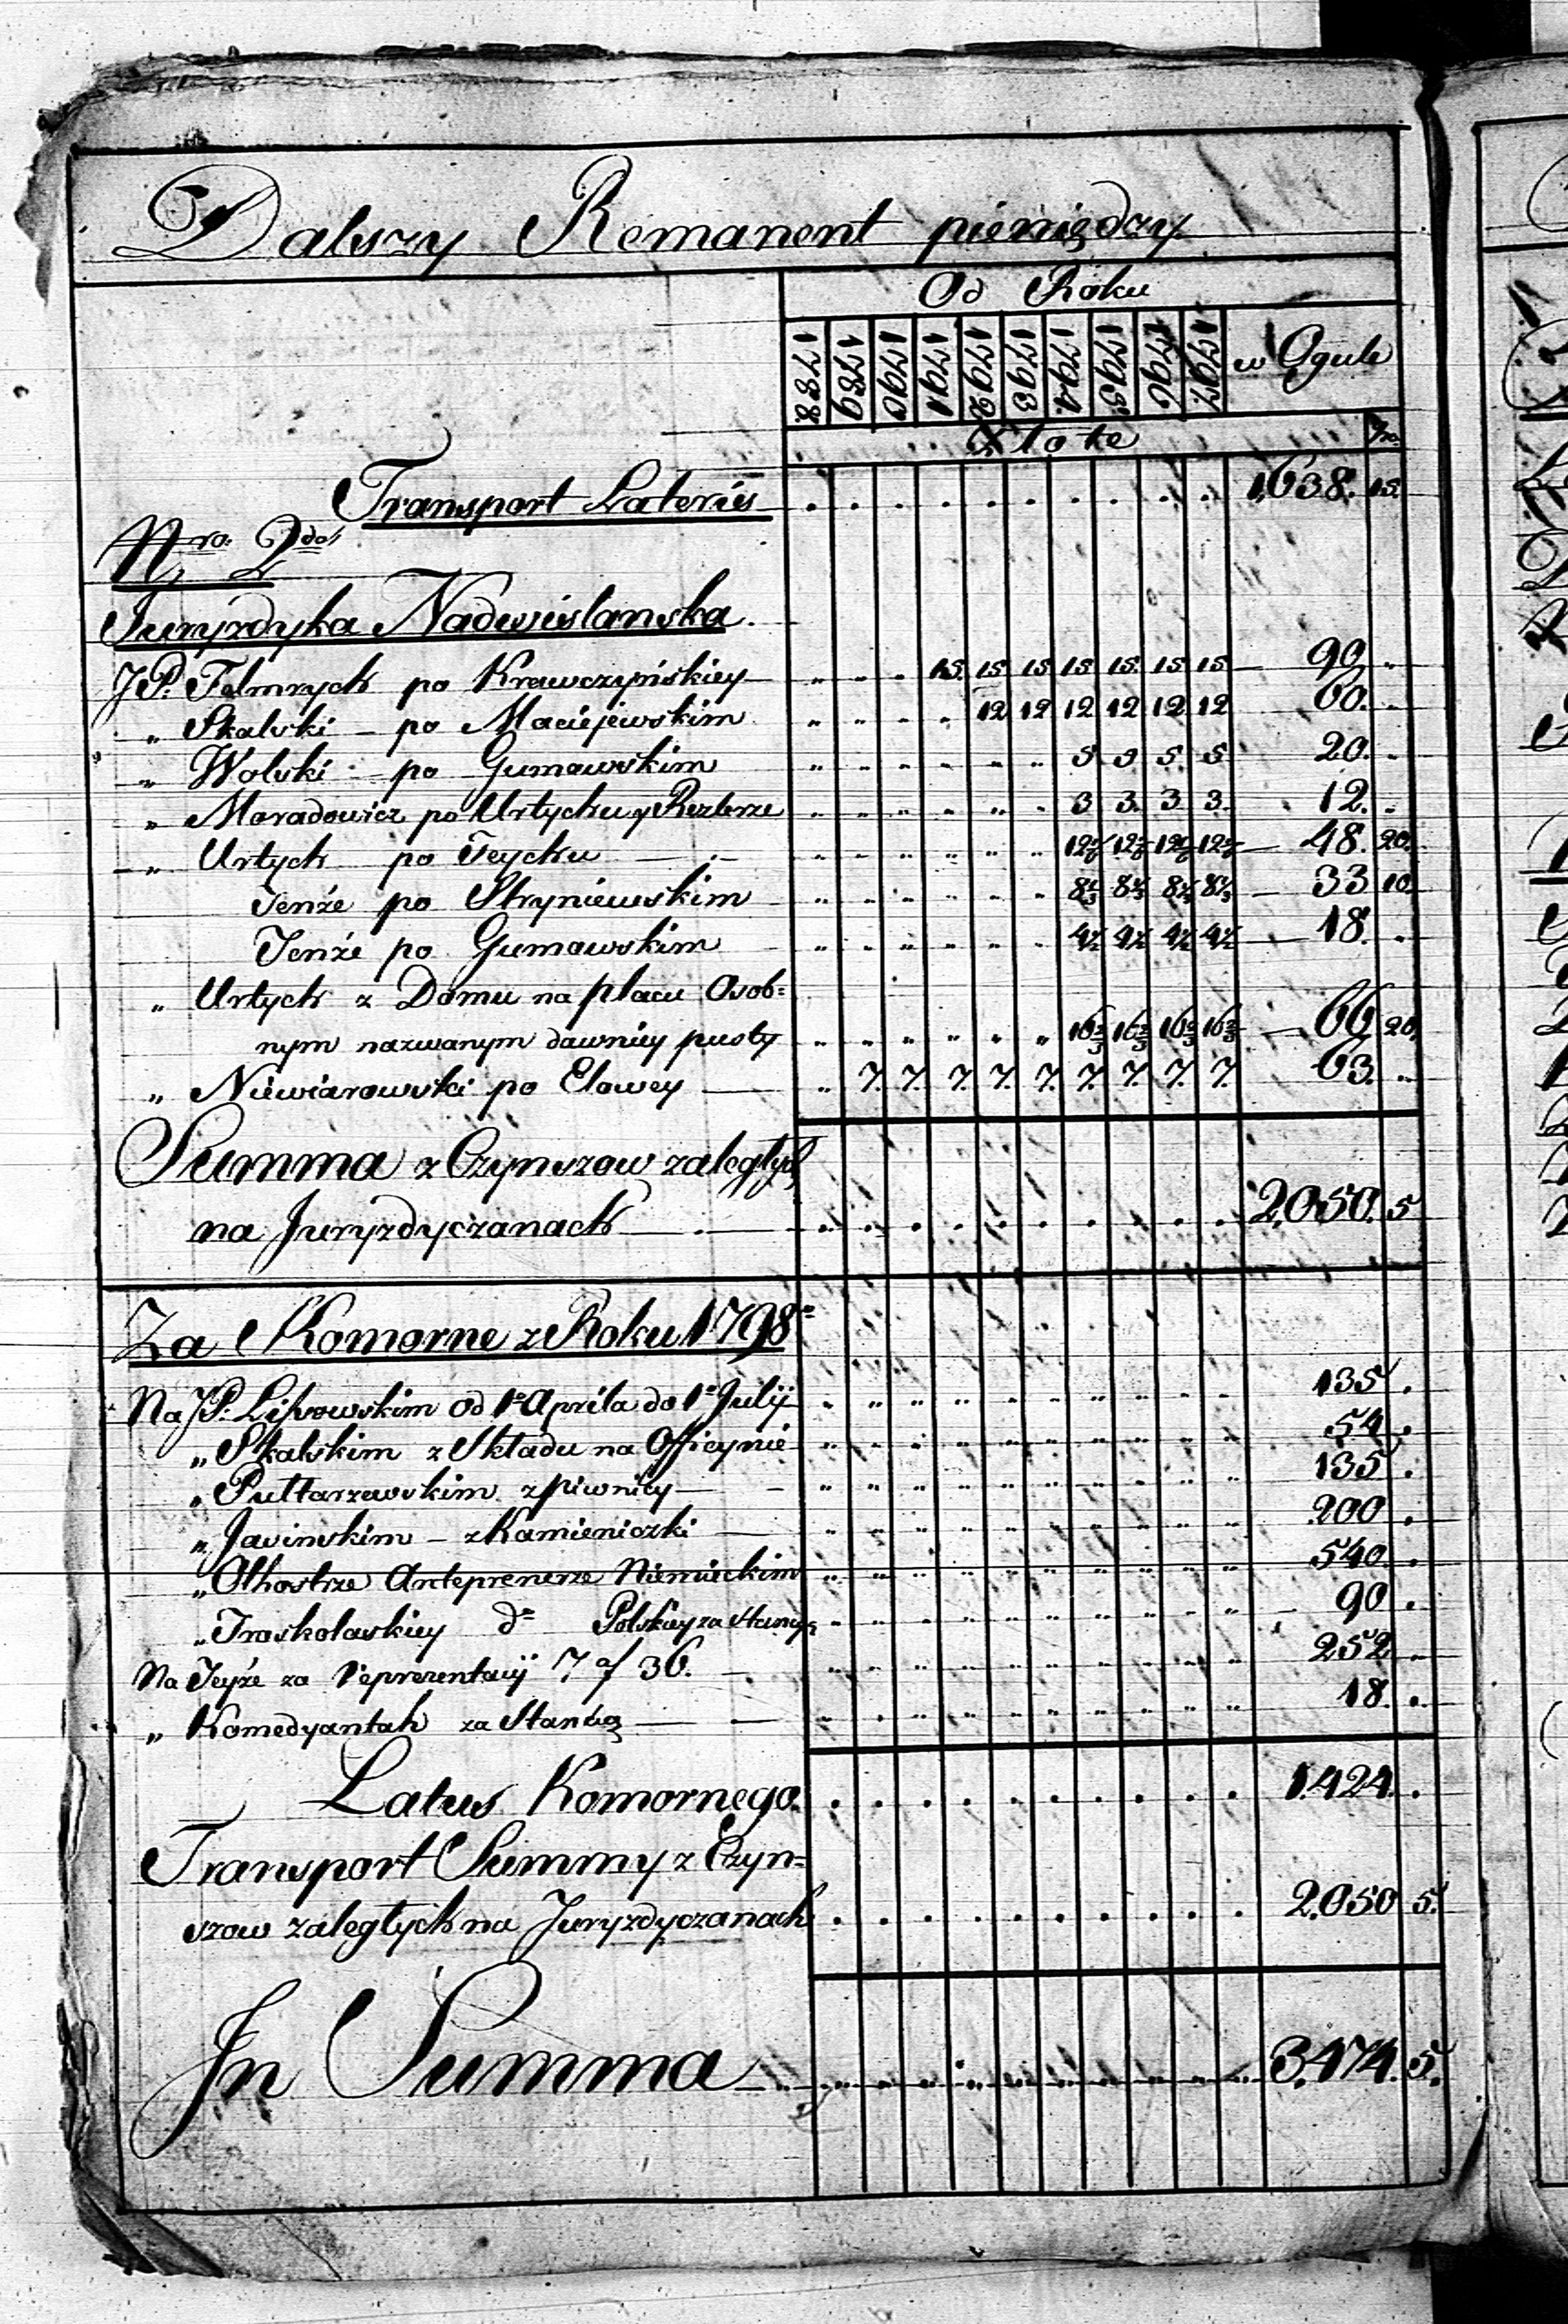 Dalszy Remanent pieniędzy
Od Roku
1788 1789 1790 1791 1792 1793 1794 1795 1796 1797 w Ogule
Złote gro.
Transport Lateris . . . . . . . . . . 1,638. 15.
Nro. 2do
Juryzdyka Nadwislanska.
JP. Felmrych po Krawczyńskiey „ „ „ 15. 15. 15. 15. 15. 15. 15. 90 „
„ Skalski – po Maciejewskim „ „ „ „ 12 12 12 12 12 12 60. „
„ Wolski – po Gumowskim „ „ „ „ „ „ 5 5 5 5 20. „
„ Maradowicz po Urtychu y Rezlerze „ „ „ „ „ „ 3 3. 3 3. 12. „
„ Urtych po Teychu „ „ „ „ „ „ 12 12 12 12 48. 20.
Tenże po Stryniewskim „ „ „ „ „ „ 8⅓ 8⅓ 8⅓ 8⅓ 33 10
Tenże po Gumowskim „ „ „ „ „ „ 4½ 4½ 4½ 4½ 18. „
„ Urtych z Domu na placu Osob=
nym nazwanym dawniey pusty „ „ „ „ „ „ 16⅔ 16⅔ 16⅔ 16⅔ 66 20.
„ Niewiarowski po Elowey „ 7. 7. 7. 7. 7. 7. 7. 7. 7. 63. „
Summa z Czynszow zaległych
na Juryzdyczanach . . . . . . . . . . 2,050. 5
Za Komorne z Roku 1798o
Na JP. Lipowskim od 1o Aprila do 1o Julij „ „ „ „ „ „ „ „ „ „ 135 .
„ Skalskim z Składu na Officynie „ „ „ „ „ „ „ „ „ „ 54 .
„ Pułtarzewskim z piwnicy „ „ „ „ „ „ „ „ „ „ 135 .
„ Jasinskim – z Kamieniczki „ „ „ „ „ „ „ „ „ „ 200 .
„ Olhostrze Anteprenerze Niemieckim „ „ „ „ „ „ „ „ „ „ 540. .
„ Traskolaskiey do Polskiey za Stancyę „ „ „ „ „ „ „ „ „ „ 90 .
Na Teyże za Reprezentacij 7 af 36. „ „ „ „ „ „ „ „ „ „ 252 „
„ Komedyantah za Stancią „ „ „ „ „ „ „ „ „ „ 18. .
Latus Komornego. . . . . . . . . . . 1,424. .
Transport Summy z Czyn=
szow zaległych na Juryzdyczanach . . . . . . . . . . 2,050 5.
Jn Summa . . . . . . . . . . 3,474. 5.